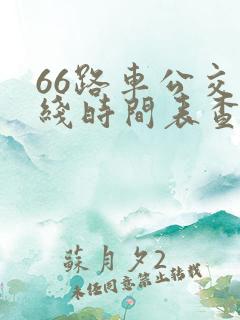 66路車公交
綫時間表查
蘇月夕2
未經同意禁止转载